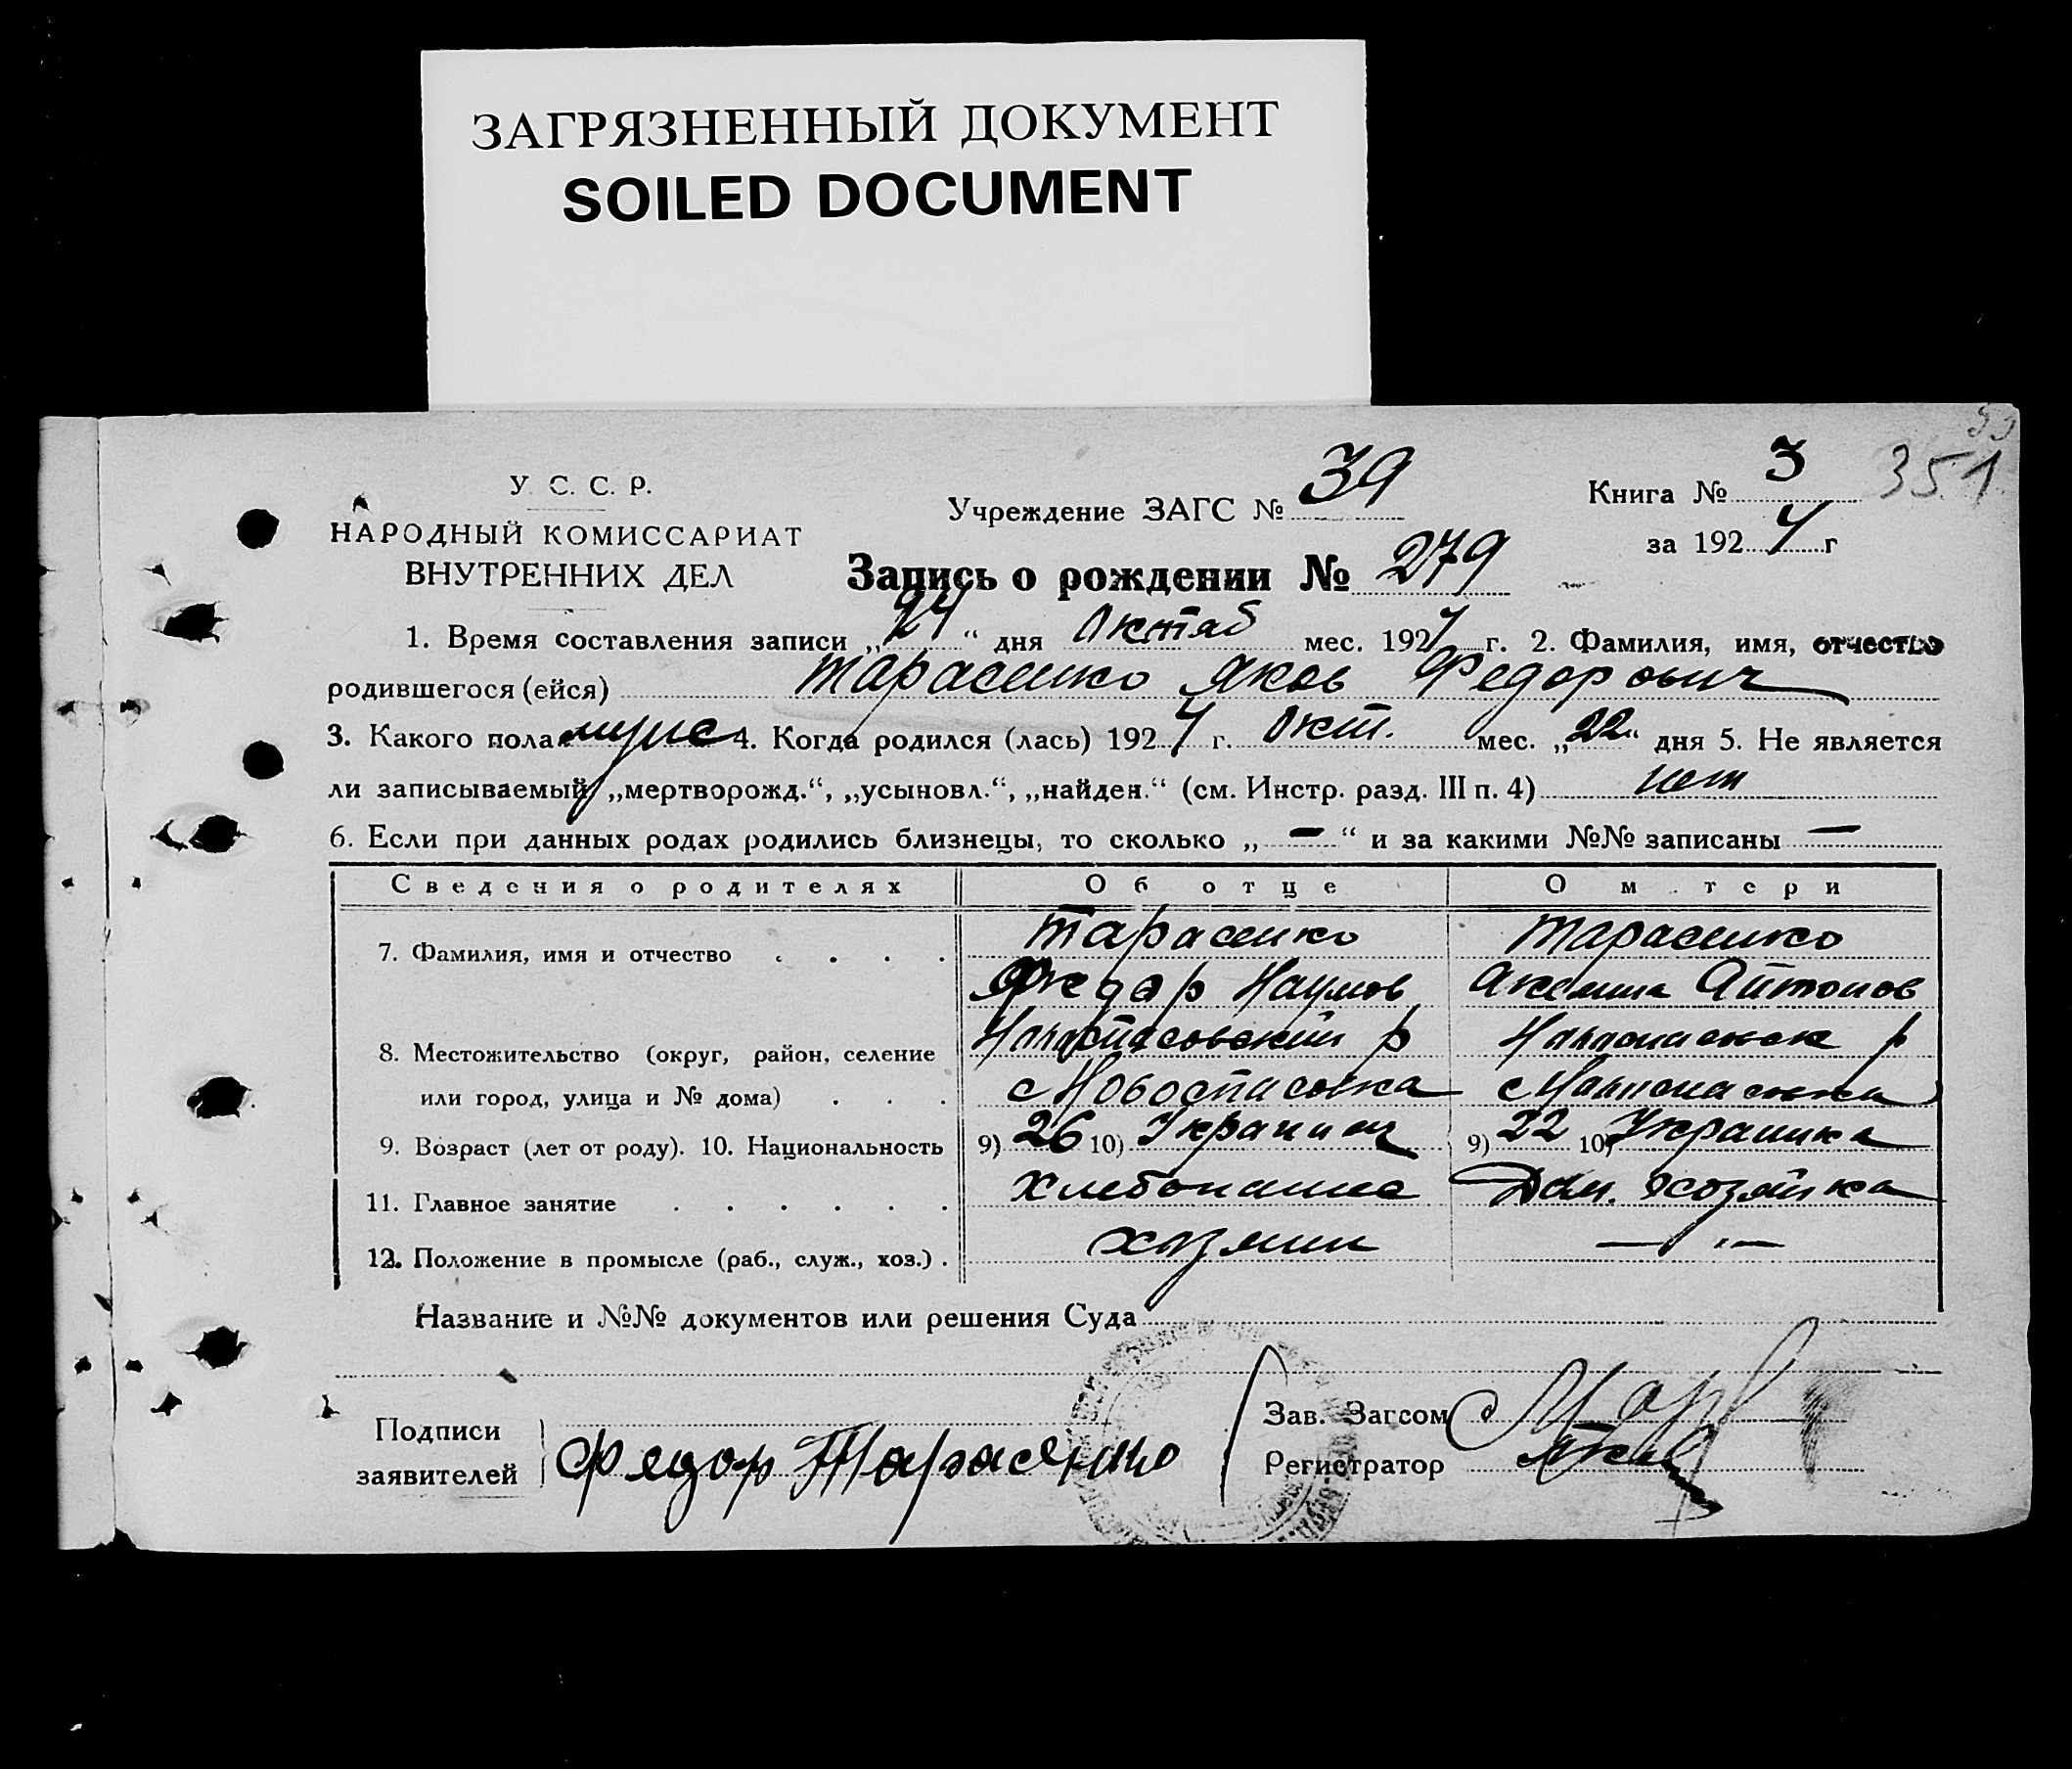 ЗАГРЯЗНЕННЫЙ ДОКУМЕНТ
SOILED DOCUMENT
351
У. С. С. Р.
НАРОДНЫЙ КОМИССАРИАТ
ВНУТРЕННИХ ДЕЛ
Учреждение ЗАГС № 39
Книга № 3
за 1924 г
Запись о рождении № 279
1. Время составления записи „24“ дня Октяб мес. 1924 г. 2. Фамилия, имя, отчество
родившегося (ейся) Тарасенко Яков Федорович
3. Какого пола муж 4. Когда родился (лась) 1924 г. Окт. мес. „22“ дня 5. Не является
ли записываемый „мертворожд.“, „усыновл.“, „найден.“ (см. Инстр. разд. III п. 4) нет
6. Если при данных родах родились близнецы, то сколько „ — “ и за какими №№ записаны —
Сведения о родителях Об отце О м тери
7. Фамилия, имя и отчество Тарасенко Тарасенко
Федор Наумов
8. Местожительство (округ, район, селение р р
или город, улица и № дома) с Новоспасовка с
9. Возраст (лет от роду). 10. Национальность 9) 26 10) Украинец 9) 22 10) Украинка
11. Главное занятие Дом. хозяйка
12. Положение в промысле (раб., служ., хоз.) хозяин —„—
Название и №№ документов или решения Суда
Подписи
заявителей Федор Тарасенко
Зав. Загсом
Регистратор